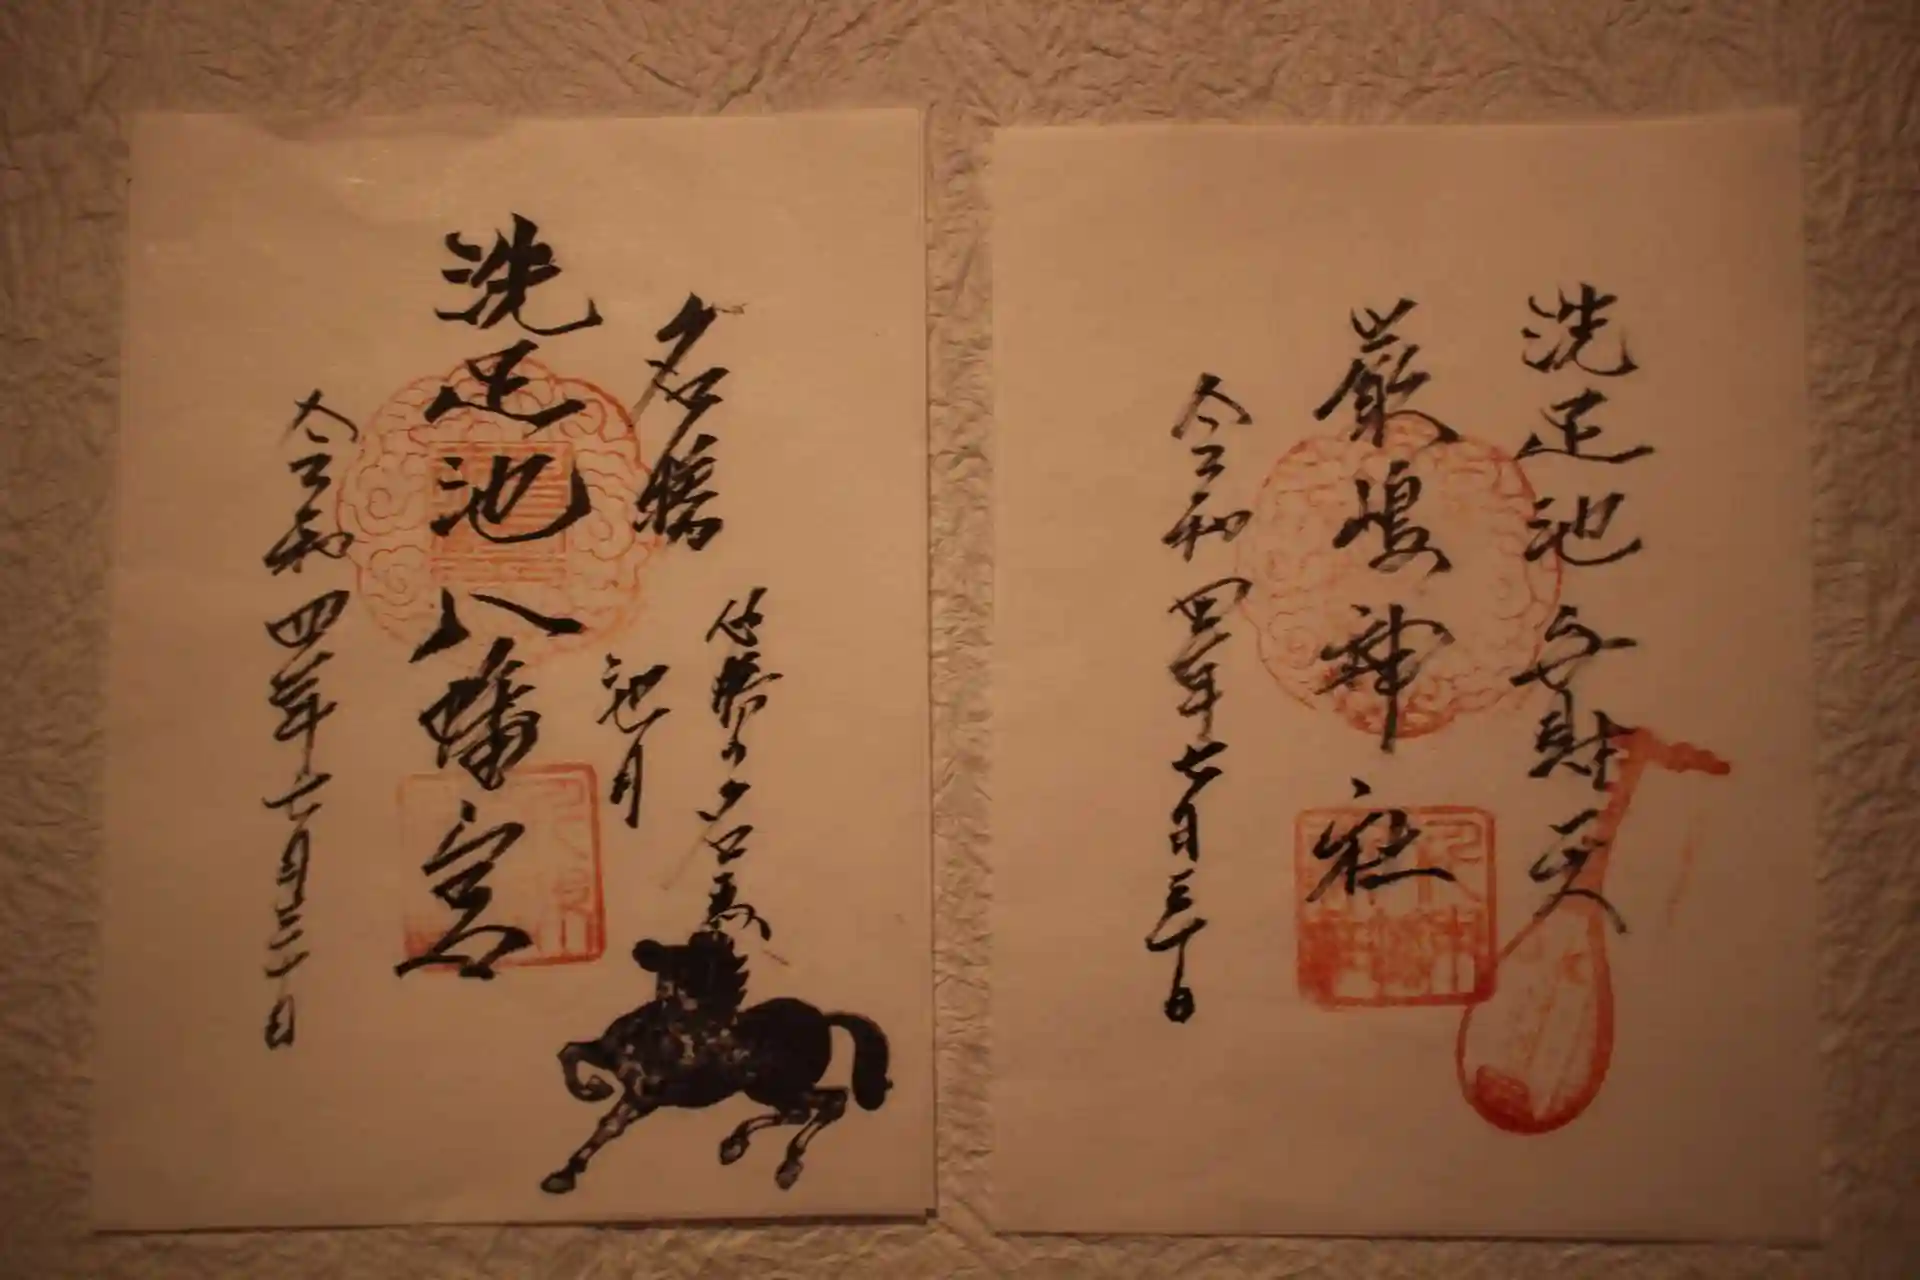 洗足池弁財天
厳嶋神社
令和四年七月三十日
名勝
必勝の名馬
池月
洗足池八幡宮
令和四年七月三十日